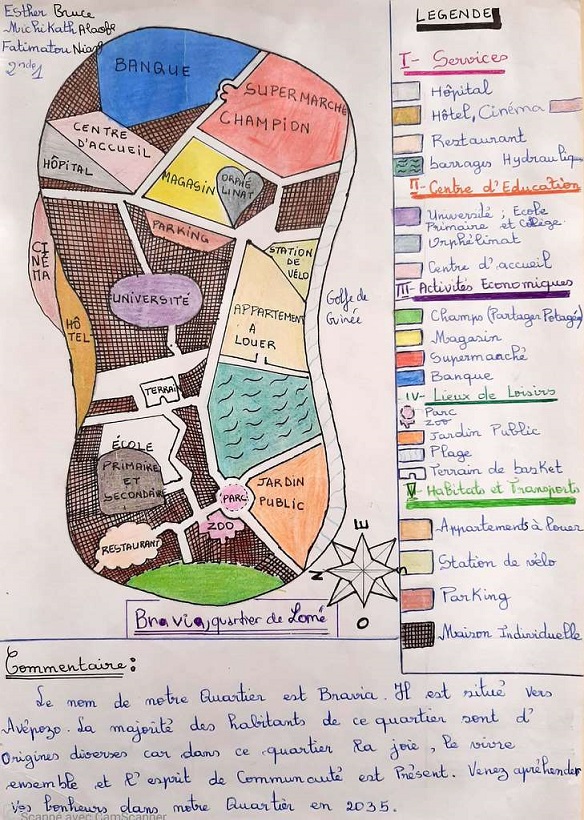 Esther Bruce
Michikath
Fatimatou
2nde 1
BANQUE
SUPERMARCHE
CHAMPION
CENTRE
D'ACCUEIL
HÔPITAL
MAGASIN
ORPHÉ
LINAT
PARKING
STATION
DE
VÉLO
CINÉMA
UNIVERSITÉ
HÔ
TEL
APPARTEMENT
A
LOUER
Golfe de
Guinée
TERRAIN
ÉCOLE
PRIMAIRE
ET
SECONDAIRE
PARC
ZOO
JARDIN
PUBLIC
RESTAURANT
E
N
S
O
Bravia, quartier de Lomé
LEGENDE
I- Services
Hôpital
Hôtel, Cinéma
Restaurant
barrages Hydrauliq
II- Centre d'Education
Université ; Ecole
Primaire et Collège.
Orphélinat
Centre d'accueil
III- Activités Economiques
Champs (Partager Potagé)
Magasin
Supermaché
Banque
IV- Lieux de Loisirs
Parc
zoo
Jardin Public
Plage
Terrain de basket
V- Habitats et Transports
Appartements à louer
Station de vélo
Parking
Maison Individuelle
Commentaire :
Le nom de notre Quartier est Bravia. Il est situé vers
Avépozo. La majorité des habitants de ce quartier sont d'
Origines diverses car dans ce quartier la joie, le vivre
ensemble et l'esprit de Communauté est Présent. Venez apréhender
vos bonheurs dans notre Quartier en 2035.
Scanné avec CamScanner